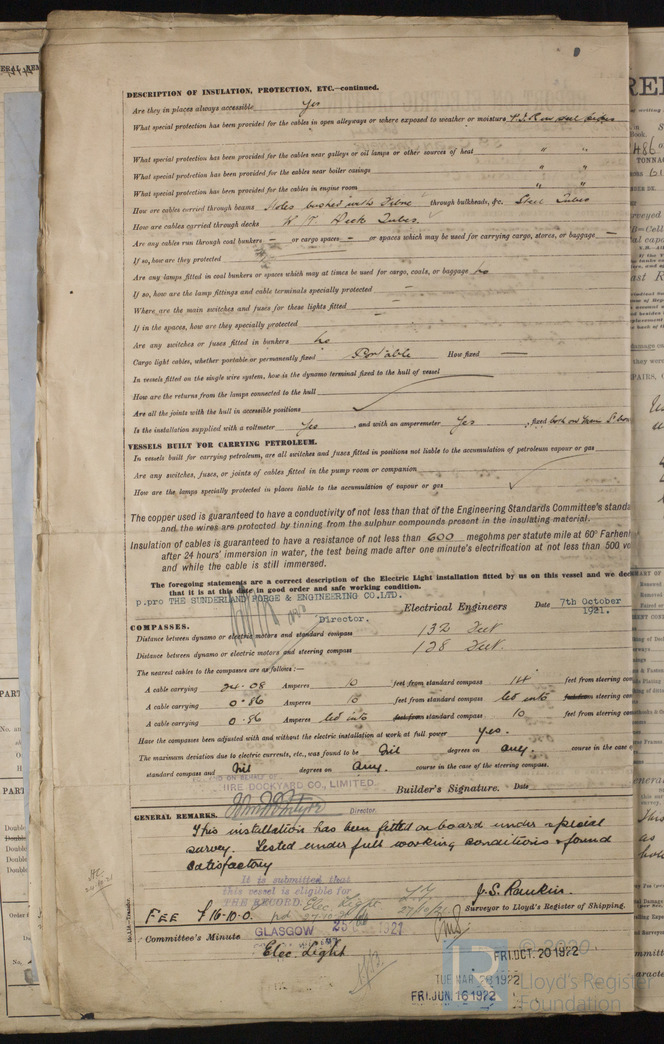 DESCRIPTION OF INSULATION, PROTECTION, ETC.—continued.
Are they in places always accessible Yes
What special protection has been provided for the cables in open alleyways or where exposed to weather or moisture
What special protection has been provided for the cables near galleys or oil lamps or other sources of heat " "
What special protection has been provided for the cables near boiler casings " "
What special protection has been provided for the cables in engine room " "
How are cables carried through beams Holes bushed with Fibre through bulkheads, &c. Steel Tubes
How are cables carried through decks W.T. Deck Tubes.
Are any cables run through coal bunkers — or cargo spaces — or spaces which may be used for carrying cargo, stores, or baggage —
If so, how are they protected
Are any lamps fitted in coal bunkers or spaces which may at times be used for cargo, coals, or baggage No
If so, how are the lamp fittings and cable terminals specially protected —
Where are the main switches and fuses for these lights fitted —
If in the spaces, how are they specially protected —
Are any switches or fuses fitted in bunkers No
Cargo light cables, whether portable or permanently fixed Portable How fixed —
In vessels fitted on the single wire system, how is the dynamo terminal fixed to the hull of vessel
How are the returns from the lamps connected to the hull
Are all the joints with the hull in accessible positions
Is the installation supplied with a voltmeter Yes , and with an amperemeter Yes , fixed both on Main S.
VESSELS BUILT FOR CARRYING PETROLEUM.
In vessels built for carrying petroleum, are all switches and fuses fitted in positions not liable to the accumulation of petroleum vapour or gas
Are any switches, fuses, or joints of cables fitted in the pump room or companion
How are the lamps specially protected in places liable to the accumulation of vapour or gas
The copper used is guaranteed to have a conductivity of not less than that of the Engineering Standards Committee's standa
and the wires are protected by tinning from the sulphur compounds present in the insulating material.
Insulation of cables is guaranteed to have a resistance of not less than 600 megohms per statute mile at 60° Farhen
after 24 hours' immersion in water, the test being made after one minute's electrification at not less than 500 vo
and while the cable is still immersed.
The foregoing statements are a correct description of the Electric Light installation fitted by us on this vessel and we dec
that it is at this date in good order and safe working condition.
p.pro THE SUNDERLAND FORGE & ENGINEERING CO. LTD.
Electrical Engineers Date 7th October
1921.
Director.
COMPASSES.
Distance between dynamo or electric motors and standard compass 132 Feet
Distance between dynamo or electric motors and steering compass 128 Feet.
The nearest cables to the compasses are as follows:—
A cable carrying 24.08 Amperes 10 feet from standard compass 14 feet from steering com
A cable carrying 0.86 Amperes 10 feet from standard compass led into feet from steering com
A cable carrying 0.86 Amperes led into feet from standard compass 10 feet from steering com
Have the compasses been adjusted with and without the electric installation at work at full power Yes.
The maximum deviation due to electric currents, etc., was found to be Nil degrees on any. course in the case o
standard compass and Nil degrees on Any. course in the case of the steering compass.
AND ON BEHALF OF
IRE DOCKYARD CO., LIMITED.
Builder's Signature. Date
Director.
GENERAL REMARKS.
This installation has been fitted on board under special
survey. Tested under full working conditions & found
satisfactory
It is submitted that
this vessel is eligible for
THE RECORD. Elec. Light
J.S. Rankin.
Surveyor to Lloyd's Register of Shipping.
FEE £16-10-0.
Committee's Minute GLASGOW 25 1921
Elec. Light
FRI. OCT. 20 1922
TUE MAR. 28 1922
FRI. JUN. 16 1922
© 2020
Lloyd's Register
Foundation